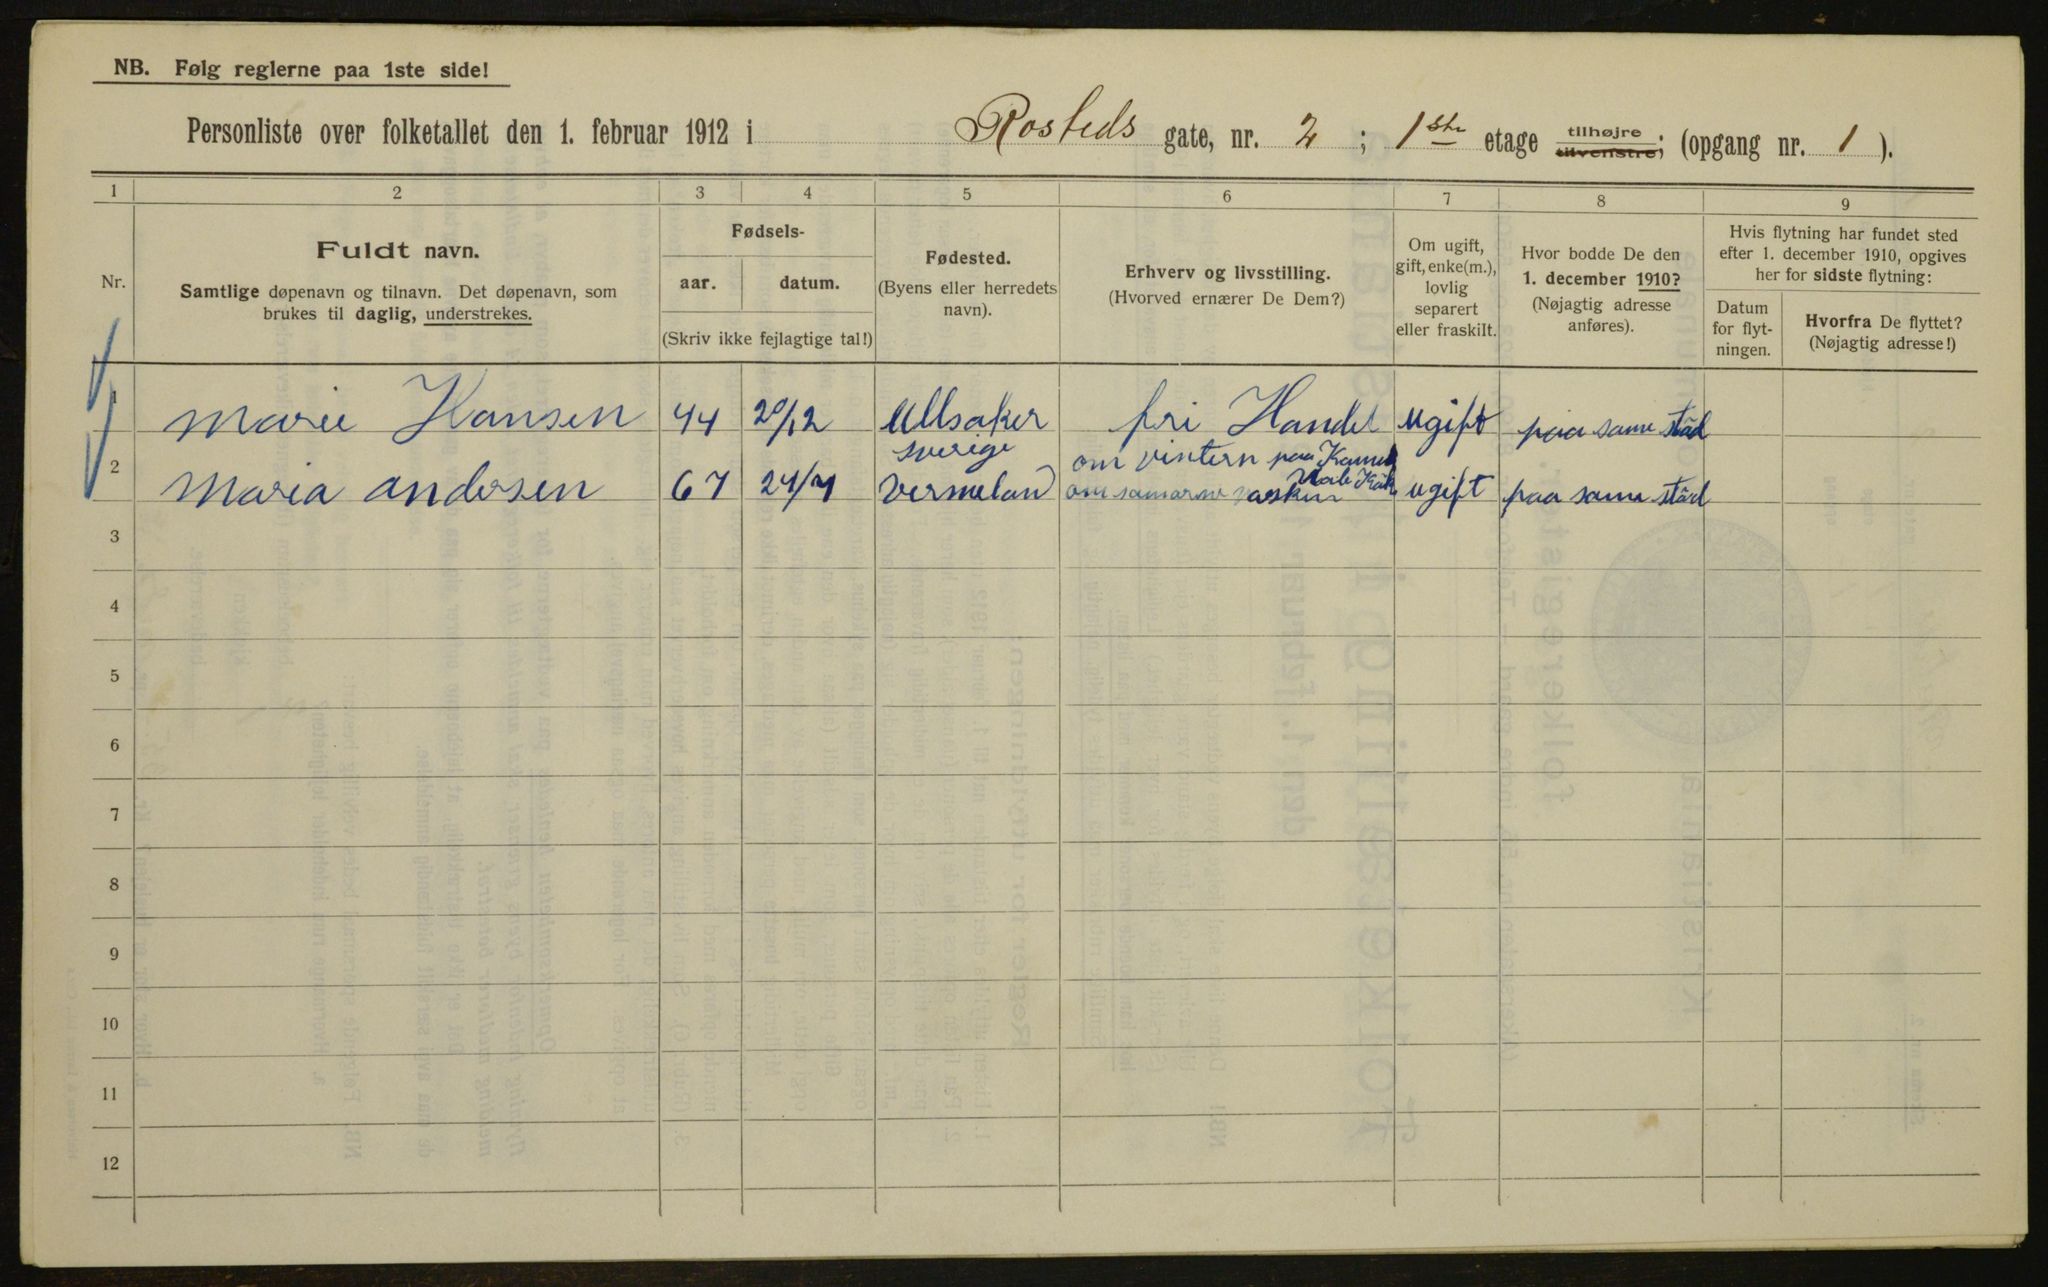 NB. Følg reglerne paa 1ste side!
Personliste over folketallet den 1. februar 1912 i Rosteds gate, nr. 2 ; 1ste etage tilhøjre tilvenstre; (opgang nr. 1 ).
1 2 3 4 5 6 7 8 9
Nr.
Fuldt navn.
Samtlige døpenavn og tilnavn. Det døpenavn, som
brukes til daglig, understrekes.
Fødsels-
aar. datum.
(Skriv ikke fejlagtige tal!)
Fødested.
(Byens eller herredets
navn).
Erhverv og livsstilling.
(Hvorved ernærer De Dem?)
Om ugift,
gift, enke(m.),
lovlig
separert
eller fraskilt.
Hvor bodde De den
1. december 1910?
(Nøjagtig adresse
anføres).
Hvis flytning har fundet sted
efter 1. december 1910, opgives
her for sidste flytning:
Datum
for flyt-
ningen.
Hvorfra De flyttet?
(Nøjagtig adresse!)
1 Marie Hansen 44 20/12 Ullsaker fri Handel ugift paa same städ
sverige om vintern paa
2 Maria andersen 67 24/7 Vermelan om samarne ugift paa same städ
3
4
5
6
7
8
9
10
11
12